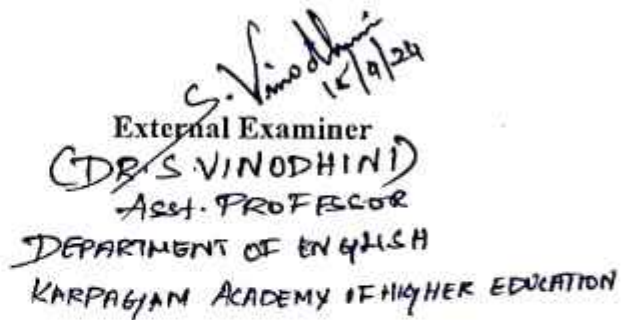 S. Vinodhini
15/9/24
External Examiner
(DR. S. VINODHINI)
Asst. PROFESSOR
DEPARTMENT OF ENGLISH
KARPAGAM ACADEMY OF HIGHER EDUCATION